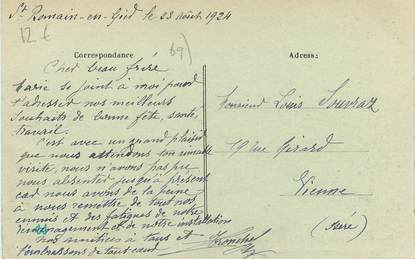 St Romain-en-Gied le 23 août 1924
12 €
69)
Correspondance
Adresse:
Cher beau frère
Marie se joint à moi pour
t'adresser nos meilleurs
souhaits de bonne fête, santé,
travail.
C'est avec un grand plaisir
que nous attendons ton aimable
visite, nous n'avons pas pu
nous absenter jusqu'à présent
car nous avons de la peine
à nous remettre de tout nos
ennuis et des fatigues de notre
déménagement et de notre installation
Nos amitiés à tous et
t'embrassons de tout cœur
Monsieur Louis Souvraz
rue Girard
Vienne
(Isère)